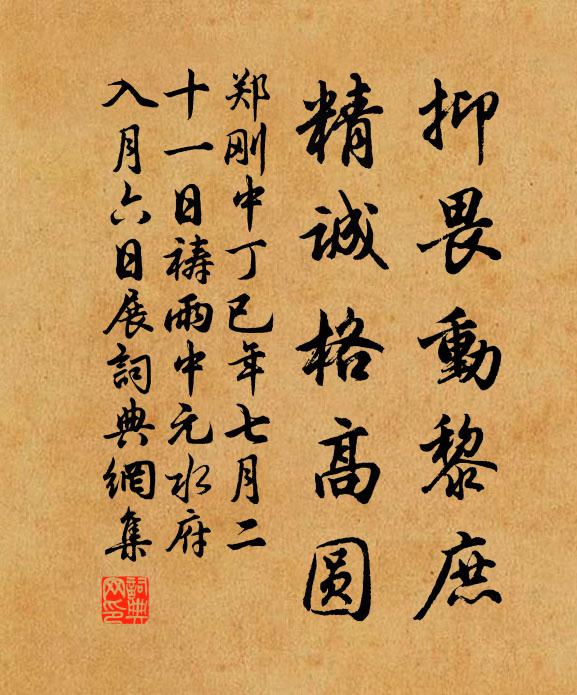 抑畏動黎庶
精诚格高圆
郑刚中丁巳年七月二
十一日祷雨中元水府
入月六日展詞典網集
詞典网印